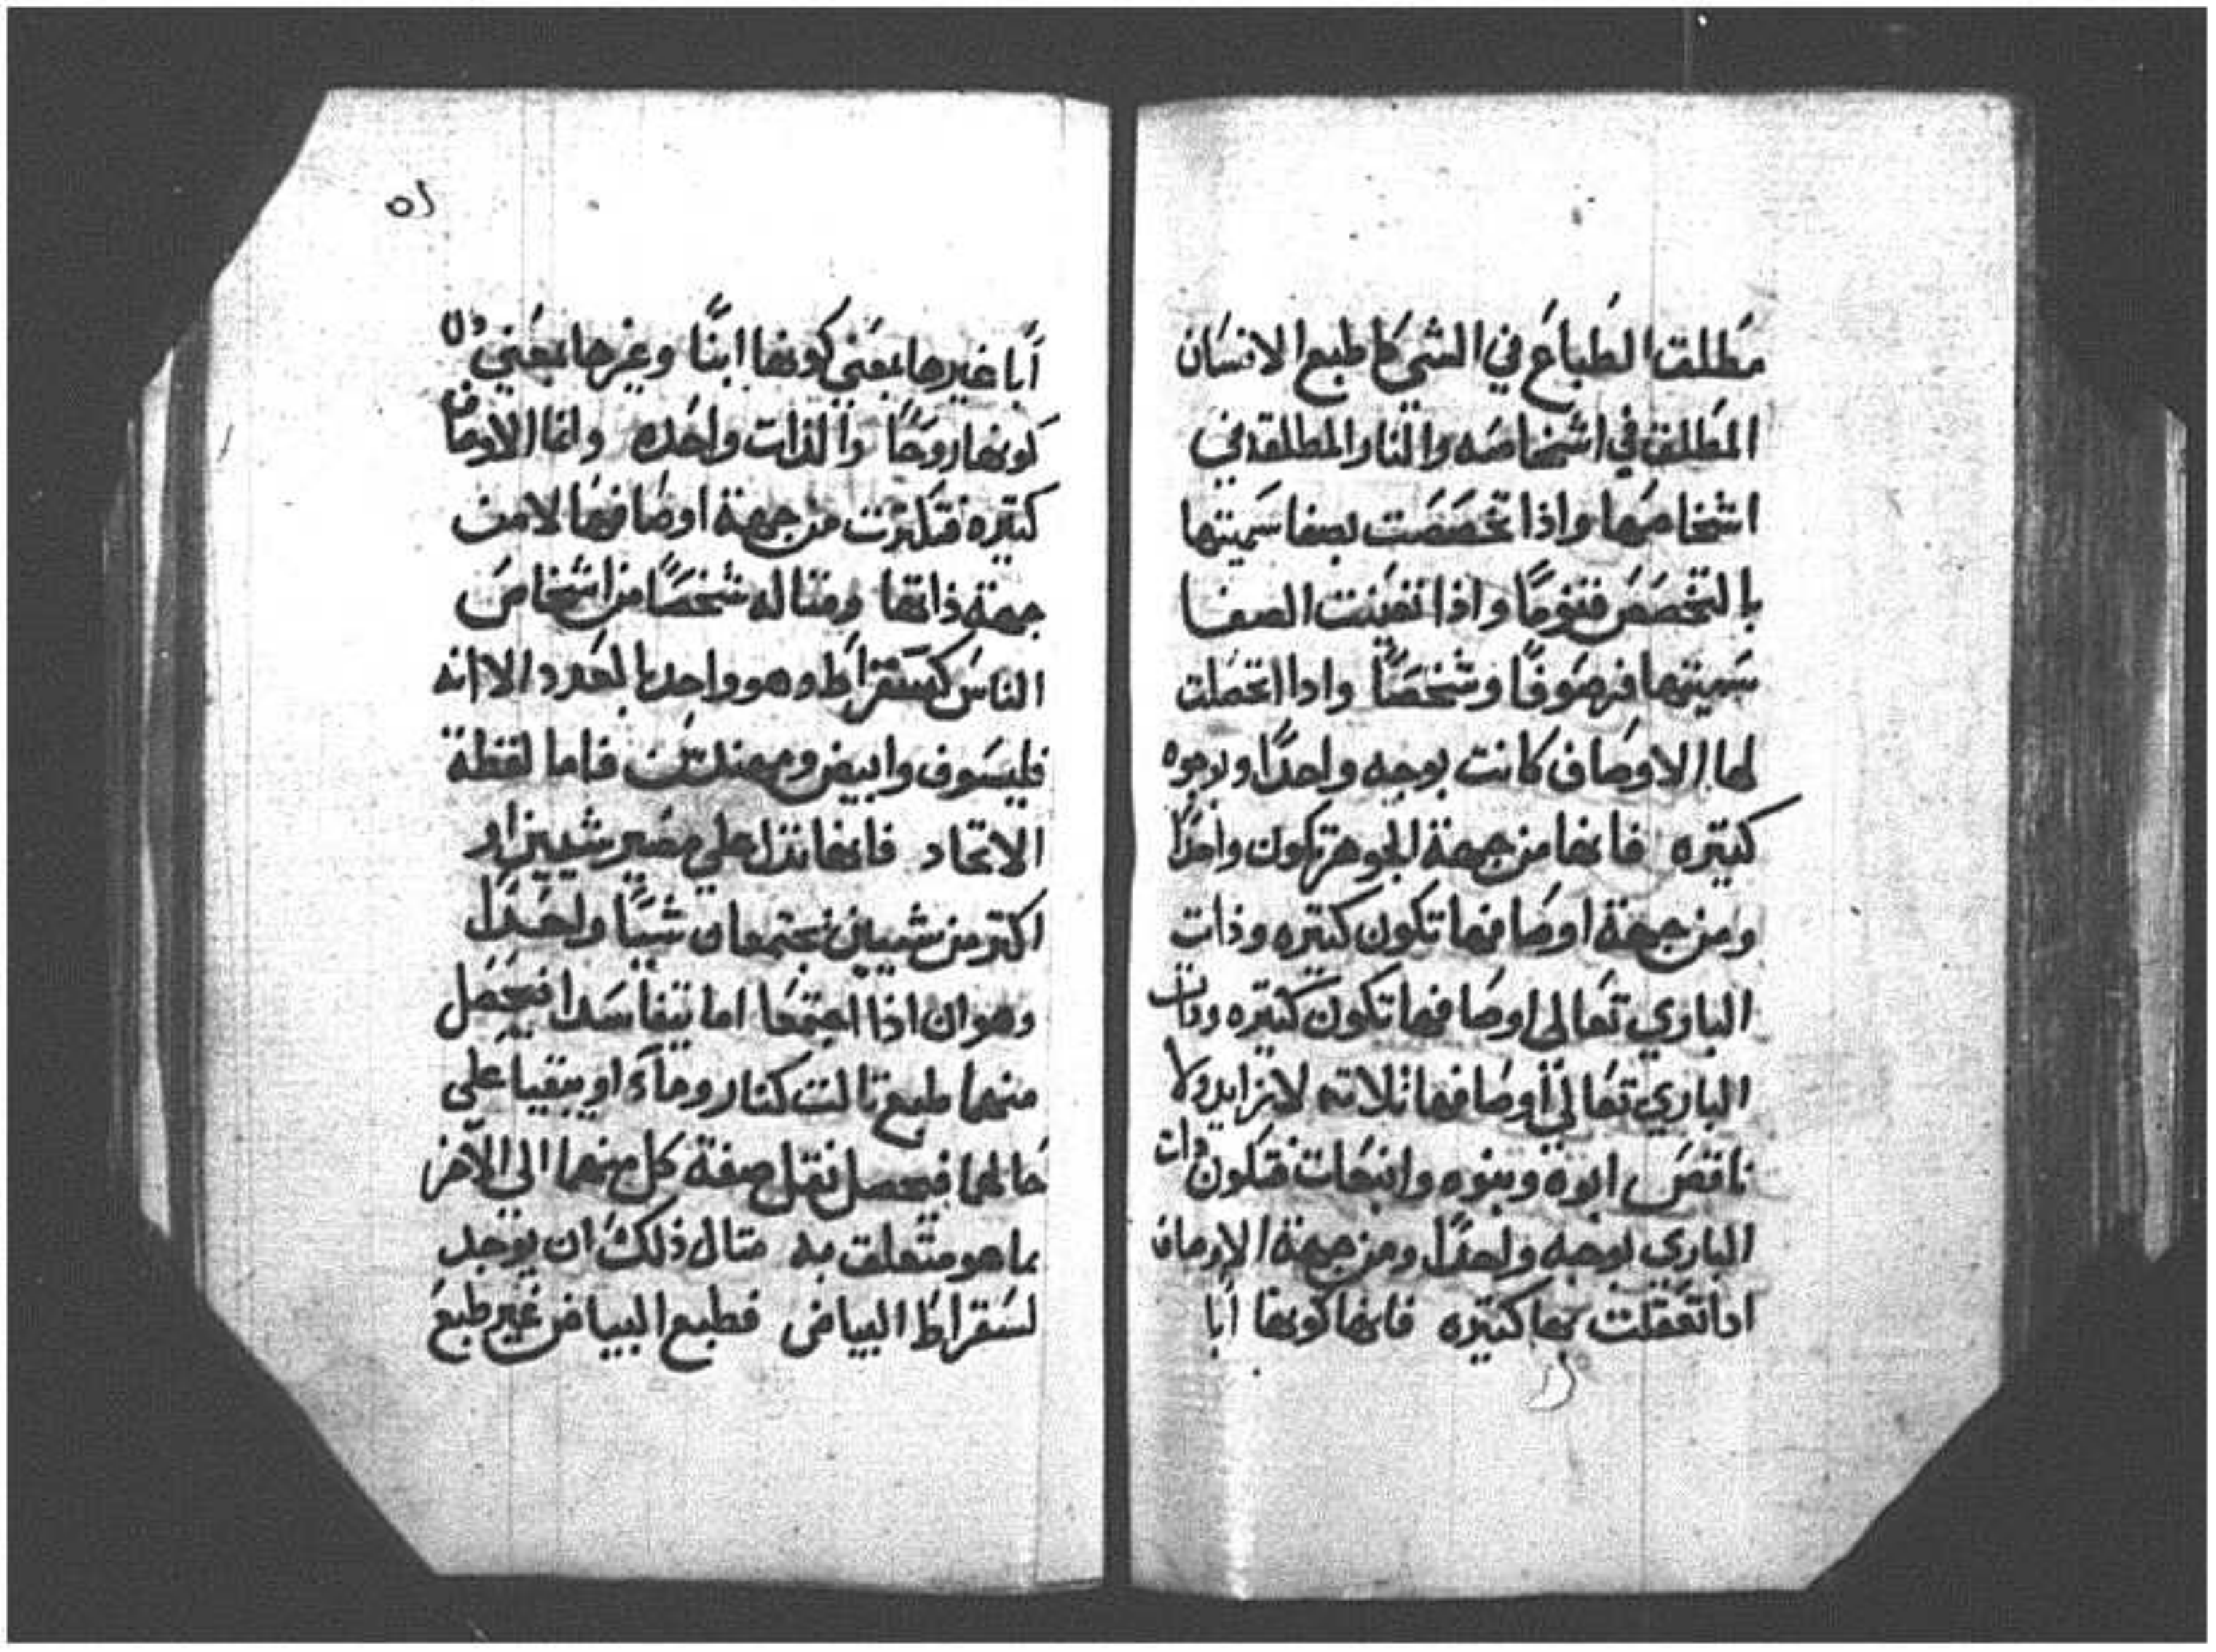 مطلق الطباع في الشي كا طبع الانسان
المطلق في اشخاصه والنار المطلقه في
اشخاصها واذا تخصصت بصفا سميتها
بالتخصص قنوما واذا تعينت الصفا
سميتها فرصوفا وشخصا وادا اتحصلت
لها الاوصاف كانت بوجه واحدا وبوجوه
كتيره فانها من جهة الجوهر تكون واحدا
ومن جهة اوصافها تكون كتيره وذات
الباري تعالى اوصافها تكون كتيره وذات
الباري تعالي اوصافها تلاته لا تزايد ولا
ناقص ابوه وبنوه وانبتات فتكون ذات
الباري بوجه واحدا ومن جهة الاوصاف
ادا تعقلت بها كتيره فانها كونها ابا
٥١
أبا غيرها بمعني كونها ابنا وغيرها بمعني
كونها روحا والذات واحده وانما الاوصاف
كتيره فتكترت من جهة اوصافها لا من
جهة ذاتها ومتاله شخصا من اشخاص
الناس كسقراط وهو واحد بالعدد الا انه
فليسوف وابيض ومهندس فاما لفظة
الاتحاد فانها تدل علي مصير شيين او
اكتر من شيين يجتمعان شيا واحدا
وهو ان اذا اجتمعا اما يتفاسدا فيحصل
منهما طبع تالت كنار وماء او يبقيا علي
حالهما فيحصل نقل صفة كل منهما الي الآخر
بما هو متعلق به متال ذلك ان يوجد
لسقراط البياض فطبع البياض غير طبع